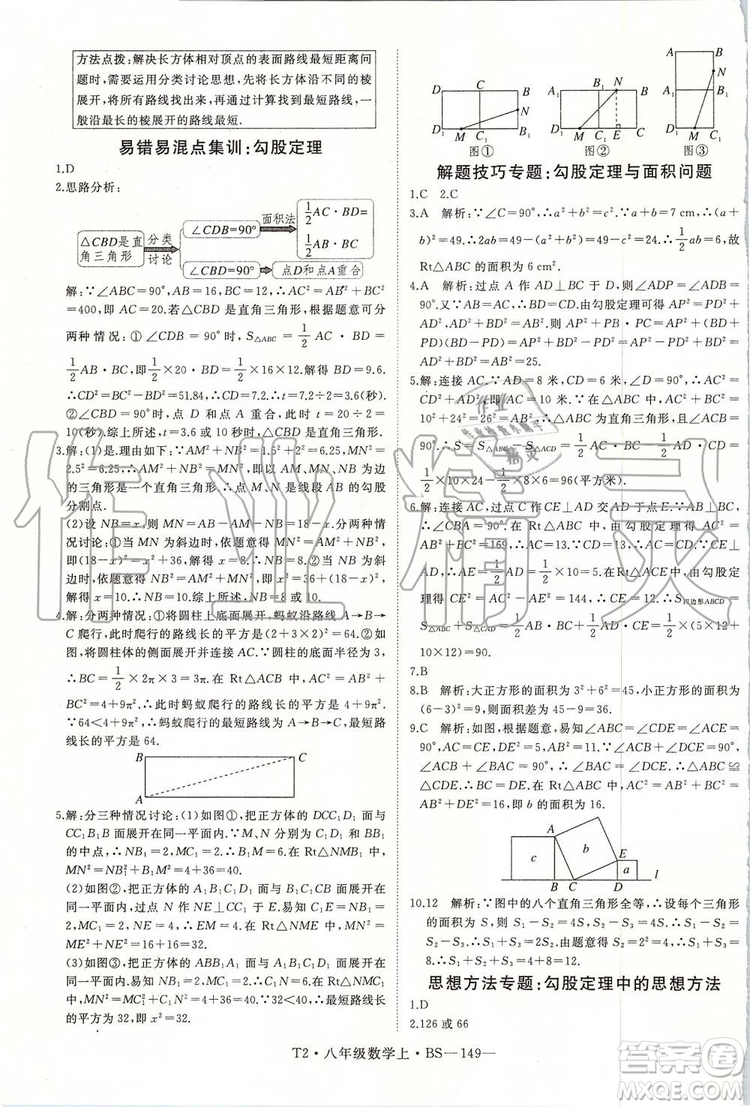 方法点拨:解决长方体相对顶点的表面路线最短距离问
题时,需要运用分类讨论思想,先将长方体沿不同的棱
展开,将所有路线找出来,再通过计算找到最短路线,一
般沿最长的棱展开的路线最短.
易错易混点集训:勾股定理
1.D
2.思路分析:
△CBD是直
角三角形
分类
讨论
∠CDB=90°
面积法
1/2 AC·BD=
1/2 AB·BC
∠CBD=90°
点D和点A重合
解:∵∠ABC=90°,AB=16,BC=12,∴AC²=AB²+BC²
=400,即AC=20.若△CBD是直角三角形,根据题意可分
两种情况:①∠CDB=90°时,S△ABC=1/2 AC·BD=
1/2 AB·BC,即1/2×20·BD=1/2×16×12,解得BD=9.6.
∴CD²=BC²-BD²=51.84,∴CD=7.2,∴t=7.2÷2=3.6(秒).
②∠CBD=90°时,点D和点A重合,∴t=20÷2=
10(秒).综上所述,t=3.6或10秒时,△CBD是直角三角形.
3.解:(1)是.理由如下:∵AM²+BN²=1.5²+2²=6.25,MN²=
2.5²=6.25,∴AM²+BN²=MN²,∴以AM、MN、NB为边
的三角形是一个直角三角形,∴点M、N是线段AB的勾股
分割点.
(2)设BN=x,则MN=AB-AM-BN=18-x.分两种情
况讨论:①当MN为最长边时,依题意得MN²=AM²+
BN²,即(18-x)²=x²+36,解得x=8;②当NB为最长边
时,依题意得BN²=AM²+MN²,即x²=36+(18-x)²,解
得x=10.综上所述,BN=8或10.
4.解:分两种情况:①将圆柱上底面展开,蚂蚁沿路线A→B→
C爬行,此时爬行的路线长的平方是(2+3×2)²=64;②如
图,将圆柱体的侧面展开,∵圆柱体的底面半径等于3,
∴BC=1/2×2π×3=3π.在Rt△ABC中,AC²=AB²+
BC²=4+9π²,∴蚂蚁爬行的路线长的平方是4+9π².
∵64<4+9π²,∴蚂蚁爬行的最短路线为A→B→C,最短路
线长的平方是64.
B C
A
5.解:分三种情况讨论:(1)如图①,把正方体的DCC₁D₁面与
CC₁B₁B面展开在同一平面内.∵M、N分别是C₁D₁和BB₁
的中点,∴NB₁=2,MC₁=2,∴在Rt△NMB₁中,
MN²=NB₁²+MB₁²=4+36=40.
(2)如图②,把正方体的A₁B₁C₁D₁面与A₁B₁BA面展开在
同一平面内,过点N作NE⊥C₁D₁于E,则∠NEM=90°,
MC₁=2,NE=4,∴ME=4,∴在Rt△MNE中,MN²=NE²
+ME²=16+16=32.
(3)如图③,把正方体的A₁B₁C₁D₁面与B₁C₁CB面展开在
同一平面内,在Rt△MC₁N中,MC₁=2,NC₁=6,∴MN²=
MC₁²+NC₁²=4+36=40.∵32<40,∴这条最短路线长的
平方为32,即x²的值为32.
D C B
N
D M C₁ B₁
图①
D C N B
D M C₁ E B₁
图②
B
N
C
D M C₁
图③
解题技巧专题:勾股定理与面积问题
1.C 2.C
3.A 解析:∵∠C=90°,∴a²+b²=c²=25.∵a+b=7 cm,∴(a+
b)²=49,∴2ab=49-(a²+b²)=24,∴1/2 ab=6,故
Rt△ABC的面积为6 cm².
4.A 解析:过点A作AD⊥BC于D,则∠ADP=∠ADB=
90°.又∵AB=AC,∴BD=CD.由勾股定理可得AP²=PD²+
AD²,AD²+BD²=AB²,∴AP²+PB·PC=AP²+(BD+
PD)(CD-PD)=AP²+(BD+PD)(BD-PD)=AP²+BD²-PD²=
AD²+BD²=AB²=25.
5.解:连接AC.∵AD=8米,CD=6米,∠ADC=90°,∴AC=
10米.∵BC=24米,AB=26米,
10²+24²=26²,∴AC²+BC²=AB²,∴∠ACB=
90°.∴S=S△ABC-S△ACD=1/2 AC·BC-1/2 AD·CD=
1/2×10×24-1/2×8×6=96(平方米).
6.解:连接AC,过点C作CE⊥AD交AD于点E.∵AB⊥BC,
∴∠CBA=90°.在Rt△ABC中,由勾股定理得AC²=AB²+
BC²=5²+12²=13²,∴AC=13.∵CD=13,∴AC=CD.∵CE⊥
AD,∴AE=1/2 AD=1/2×10=5.在Rt△ACE中,由勾股定
理得CE²=AC²-AE²=13²-5²=12²,∴CE=12,∴S四边形ABCD=
S△ABC+S△CAD=1/2 AB·BC+1/2 AD·CE=1/2×(5×12+
10×12)=90.
7.B
8.B 解析:大正方形的面积为3²+6²=45,小正方形的面积为
(6-3)²=9,则面积差为45-9=36.
9.C 解析:如图,根据题意,易知∠ABC=∠CDE=∠ACE=
90°,AC=CE,DE²=5,AB²=11,∴∠BAC=∠DCE,∴△ABC≌
△CDE,∴BC=DE,∴AC²=AB²+BC²=AB²+DE²=
11+5=16,即b的面积为16.
A c b E a B C D
10.12 解析:∵图中的八个直角三角形全等,∴设每个三角形
的面积为S,则S₁-S₂=4S,S₂-S₃=4S,∴S₁-S₂=S₂-
S₃,∴S₁+S₃=2S₂.∵S₁+S₂+S₃=12,∴3S₂=12,∴S₂=4,∴S₁+S₃=
8.
思想方法专题:勾股定理中的思想方法
1.D
2.126或66
T2·八年级数学上·BS—149—
作业精灵
答案圈
MXQE.COM